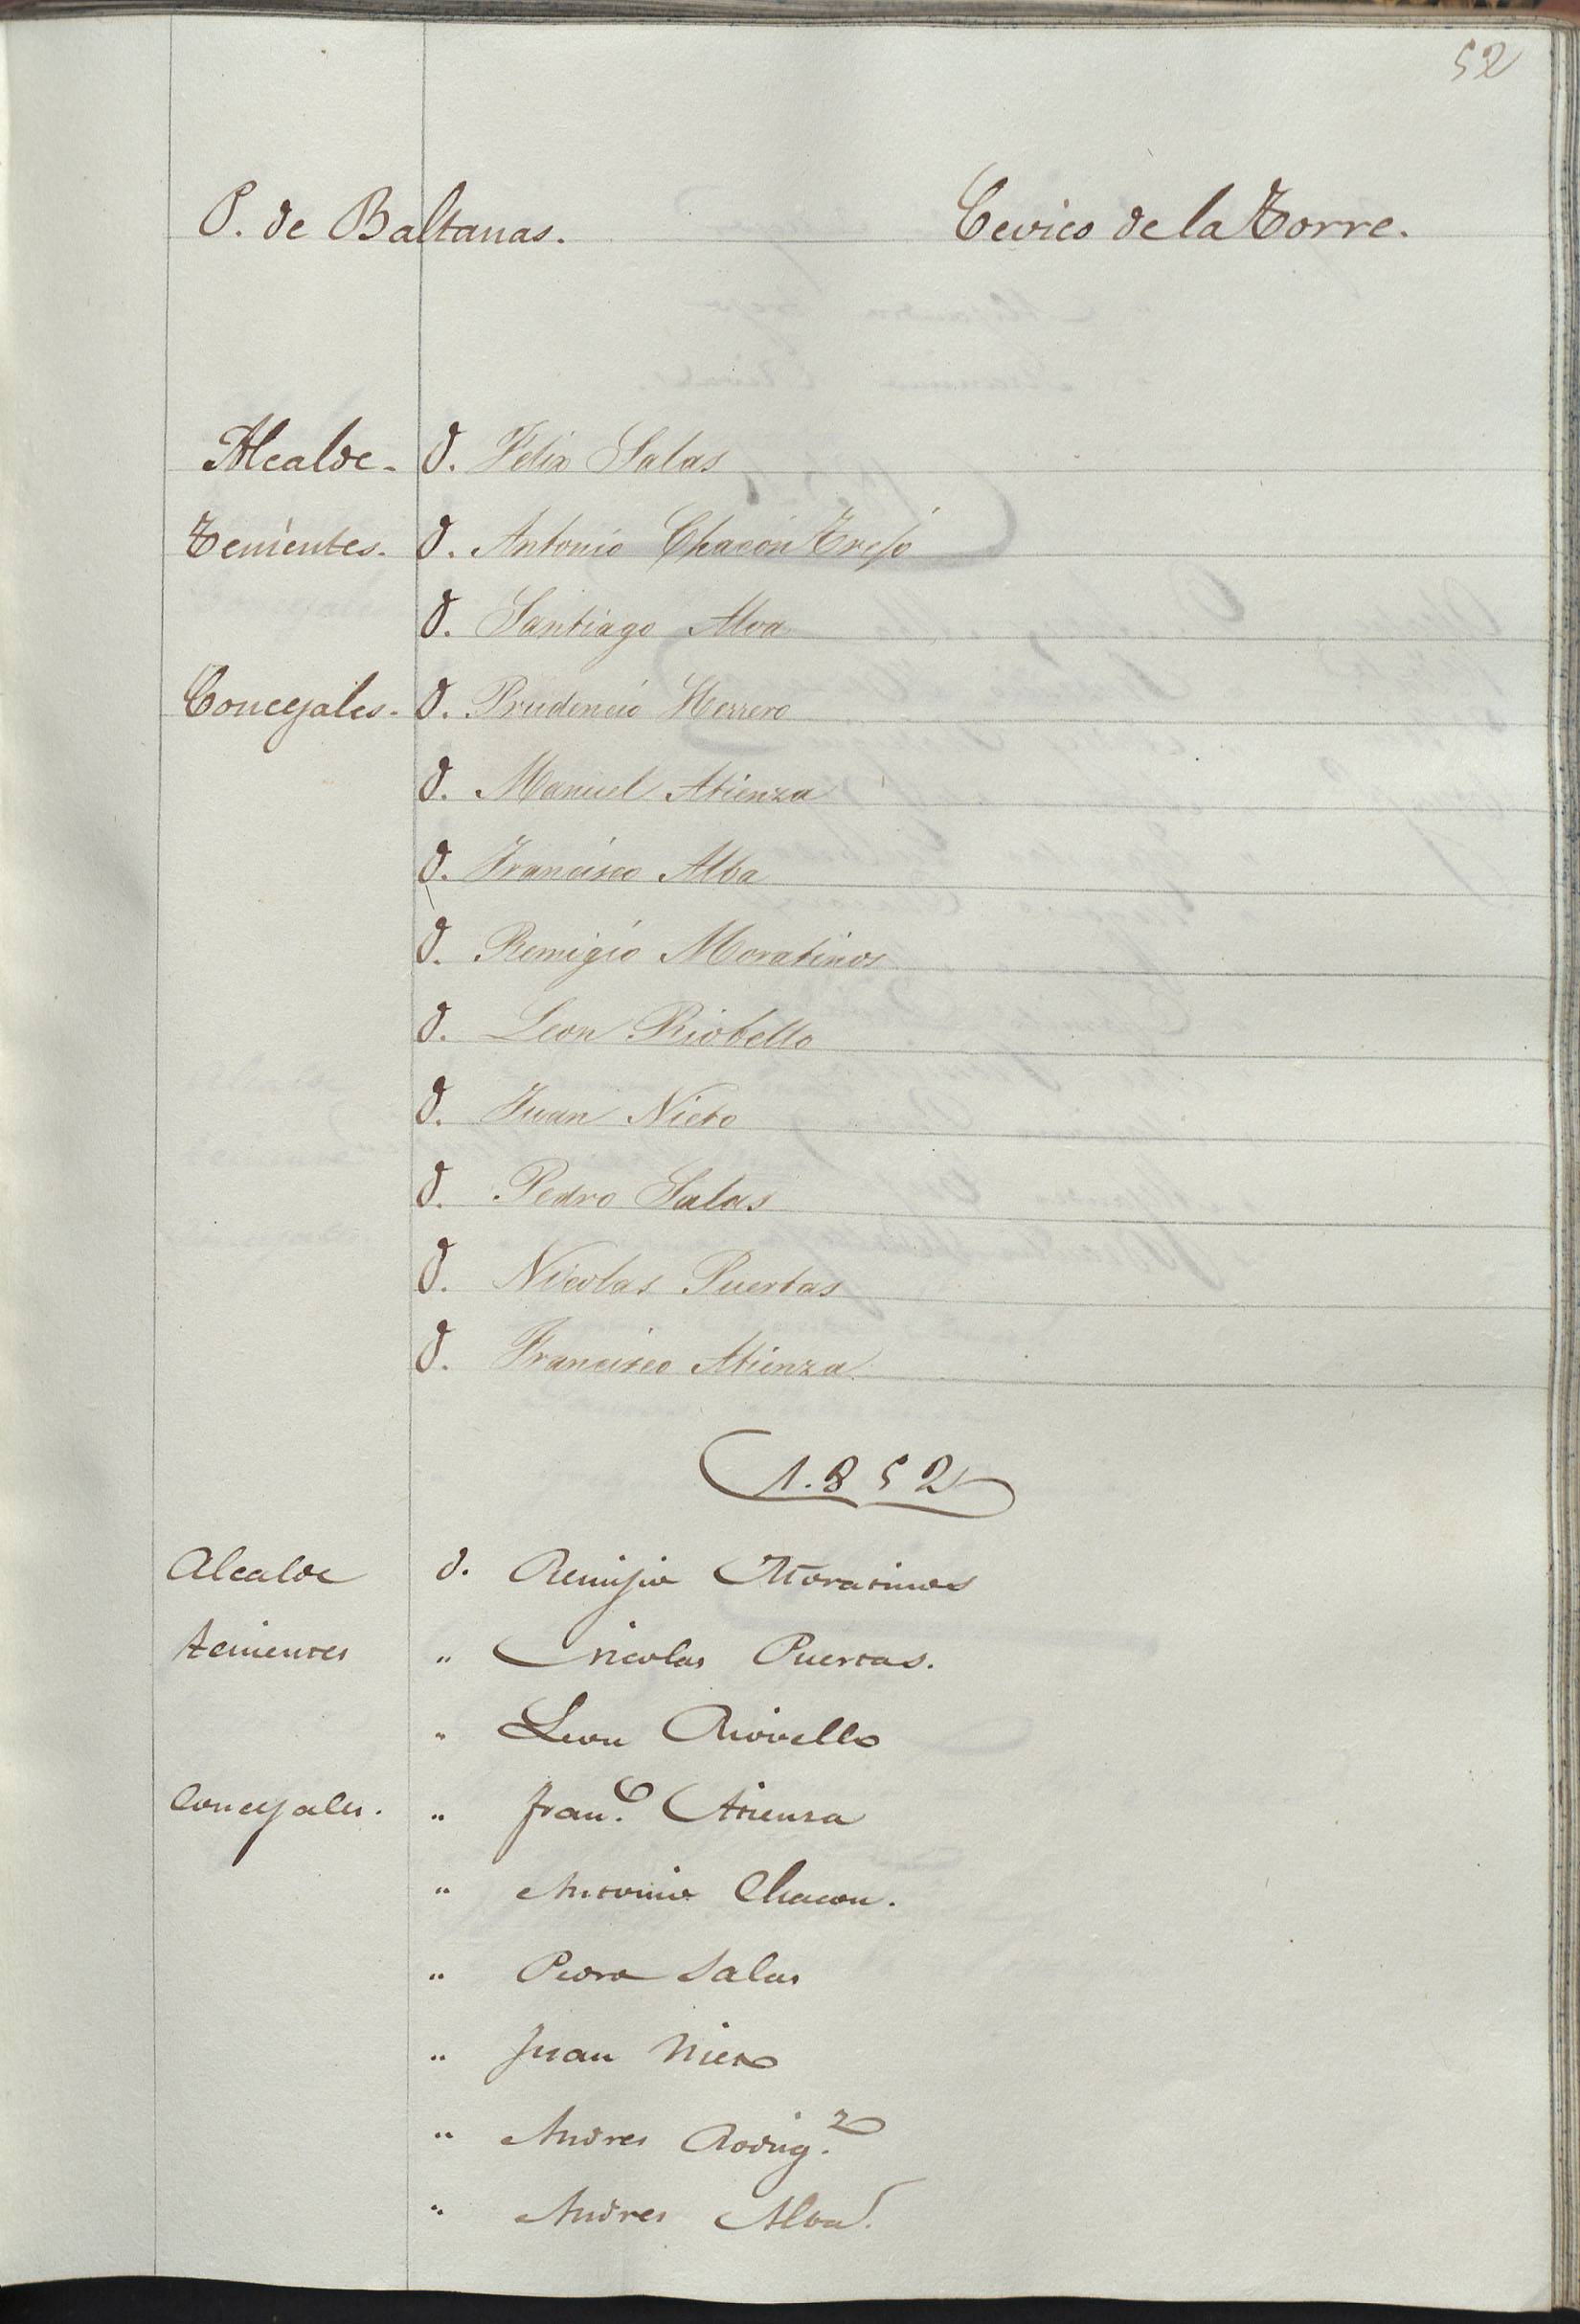 52
P. de Baltanas. Cevico de la Torre.
Alcalde - D. Felix Salas
Tenientes. D. Antonio Chacon Trejo
D. Santiago Alva
Concejales - D. Prudencio Herrero
D. Manuel Atienza
D. Francisco Alba
D. Remigio Moratinos
D. Leon Riobello
D. Juan Nieto
D. Pedro Salas
D. Nicolas Puertas
D. Francisco Atienza
1.852
Alcalde D. Remijio Moratinos
tenientes " Nicolas Puertas.
" Leon Riovello
Concejales. " Fran.co Atienza
" Antonio Chacon.
" Pedro Salas
" Juan Nieto
" Andres Rodrig.z
" Andres Alba.